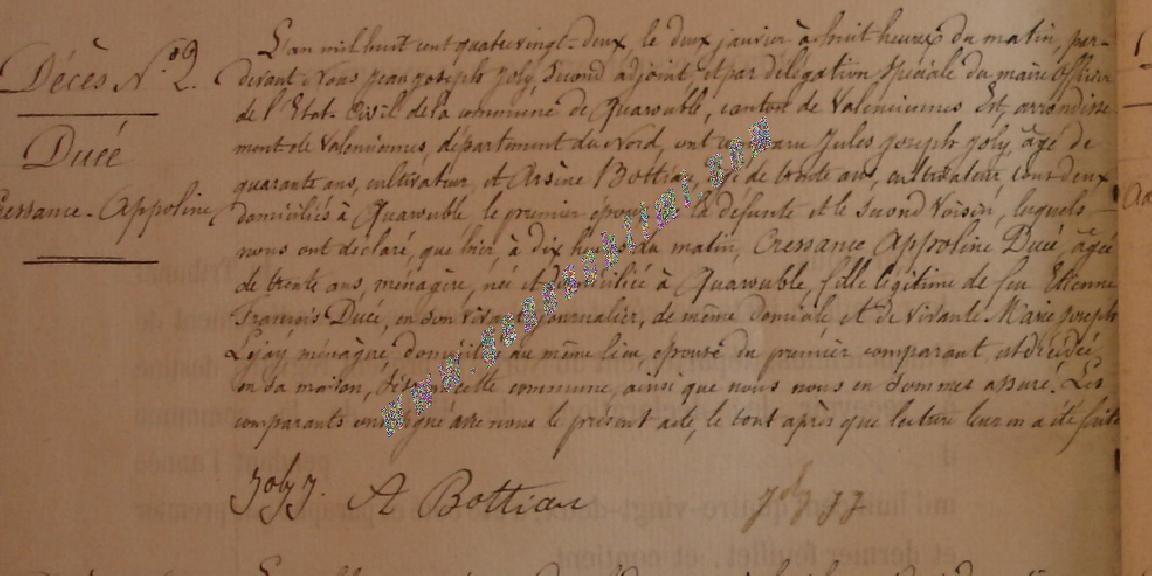 Décès N.º 2.
Ducé
Cressance-Appoline
L'an mil huit cent quatre vingt-deux, le deux janvier à huit heures du matin, par-
devant Nous Jean Joseph Joly, second adjoint, et par délégation spéciale du maire officier
de l'Etat-Civil de la commune de Quarouble, canton de Valenciennes Est, arrondisse-
ment de Valenciennes, département du Nord, ont comparu Jules Joseph Joly, âgé de
quarante ans, cultivateur, et Arsène Bottiau, âgé de trente ans, cultivateur, tous deux
domiciliés à Quarouble le premier époux de la défunte et le second voisin, lesquels
nous ont déclaré, que hier, à dix heures du matin, Cressance Appoline Ducé, âgée
de trente ans, ménagère, née et domiciliée à Quarouble, fille légitime de feu Etienne
François Ducé, en son vivant journalier, de même domicile et de vivante Marie Joseph
Lejay ménagère domiciliée au même lieu, épouse du premier comparant, est décédée
en sa maison, sise en cette commune, ainsi que nous nous en sommes assuré. Les
comparants ont signé avec nous le présent acte, le tout après que lecture leur en a été faite
Joly J. A Bottiau Joly JJ